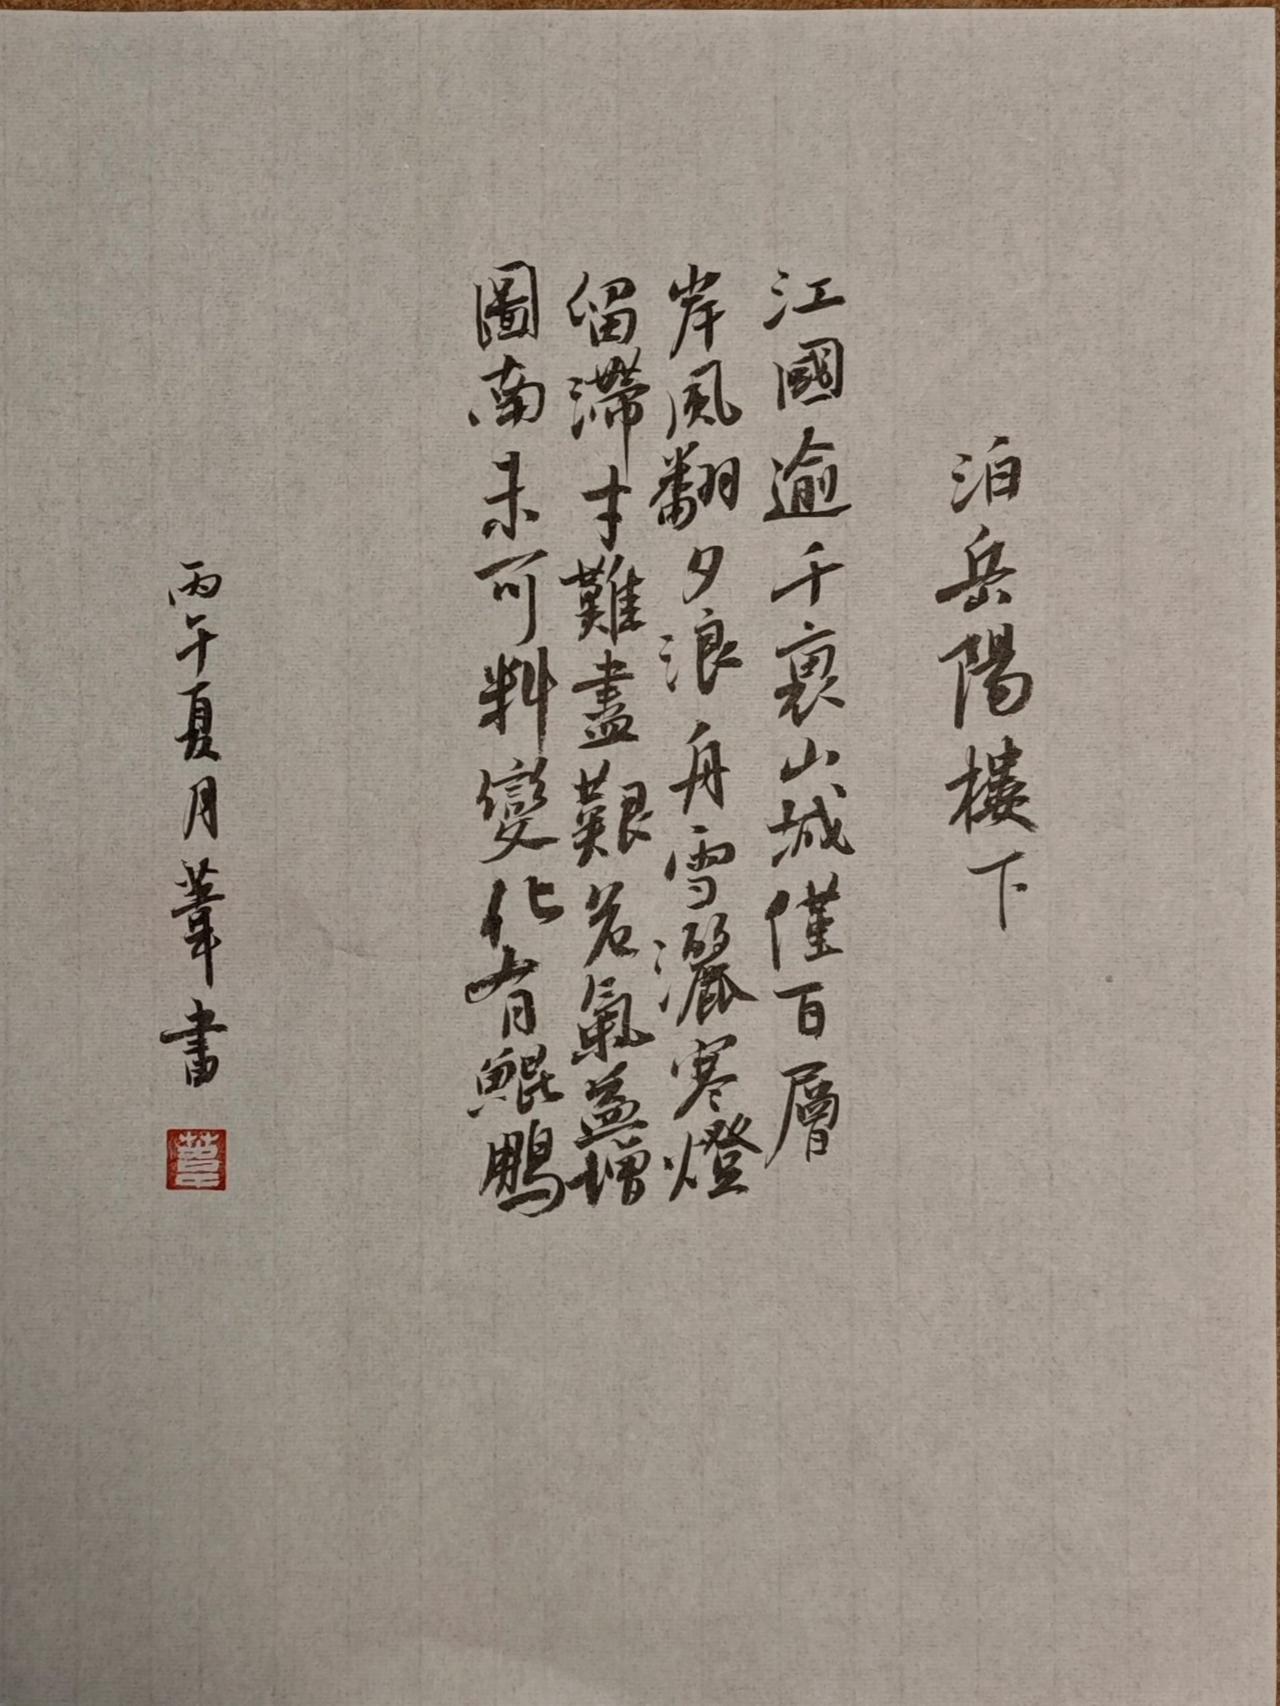 泊岳陽樓下
江國逾千裏山城僅百層
岸風翻夕浪舟雪灑寒燈
留滯才難盡艱危氣益增
圖南未可料變化有鯤鵬
丙午夏月葦書